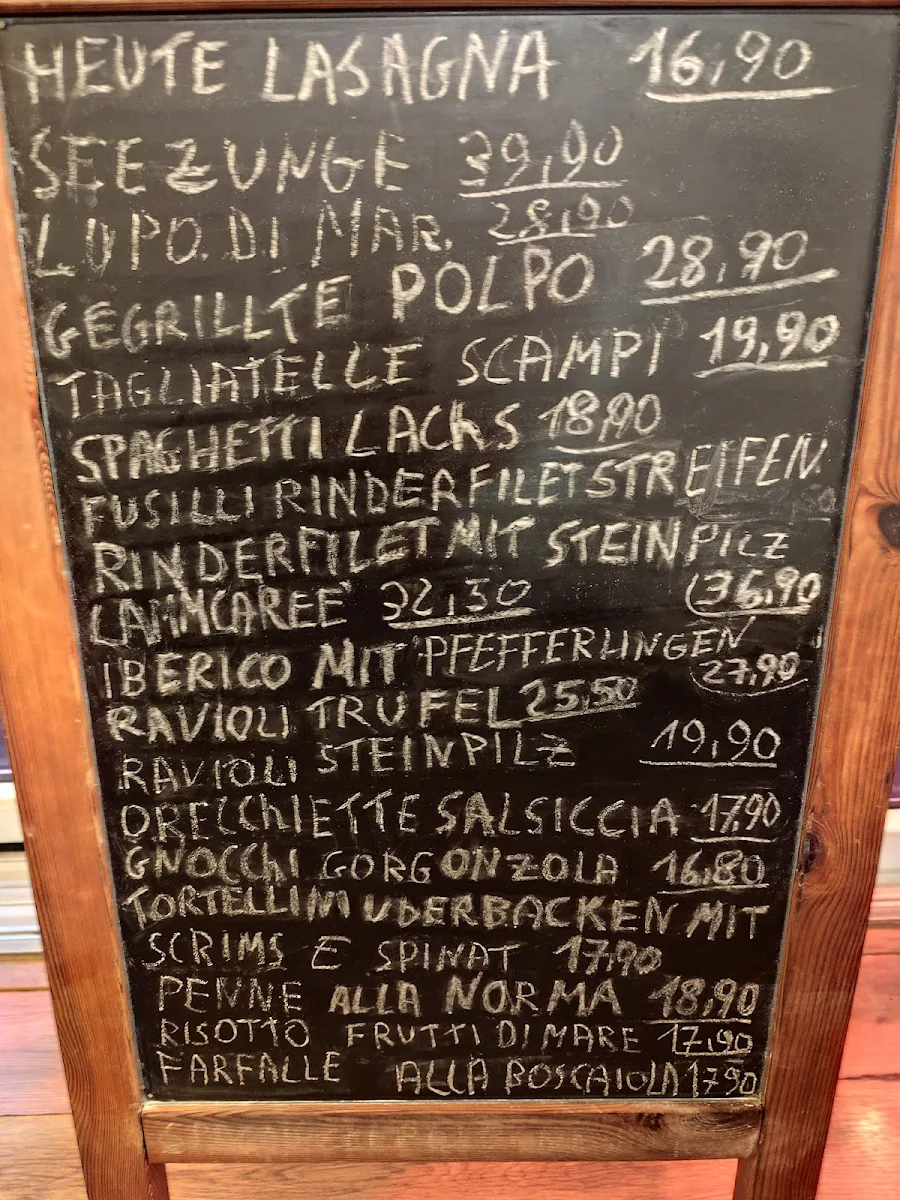 HEUTE LASAGNA 16,90
SEEZUNGE 39,90
LUPO.DI MAR. 28,90
GEGRILLTE POLPO 28,90
TAGLIATELLE SCAMPI 19,90
SPAGHETTI LACHS 18,90
FUSILLI RINDERFILETSTREIFEN
RINDERFILET MIT STEINPILZ
36,90
LAMMCAREE 32,50
IBERICO MIT PFEFFERLINGEN
27,90
RAVIOLI TRUFEL 25,50
RAVIOLI STEINPILZ 19,90
ORECChIETTE SALSICCIA 17,90
GNOCChI GORGONZOLA 16,80
TORTELLINI UDERBACKEN MIT
SCRIMS E SPINAT 17,90
PENNE ALLA NORMA 18,90
RISOTTO FRUTTI DI MARE 17,90
FARFALLE ALLA BOSCAIOLA 17,90